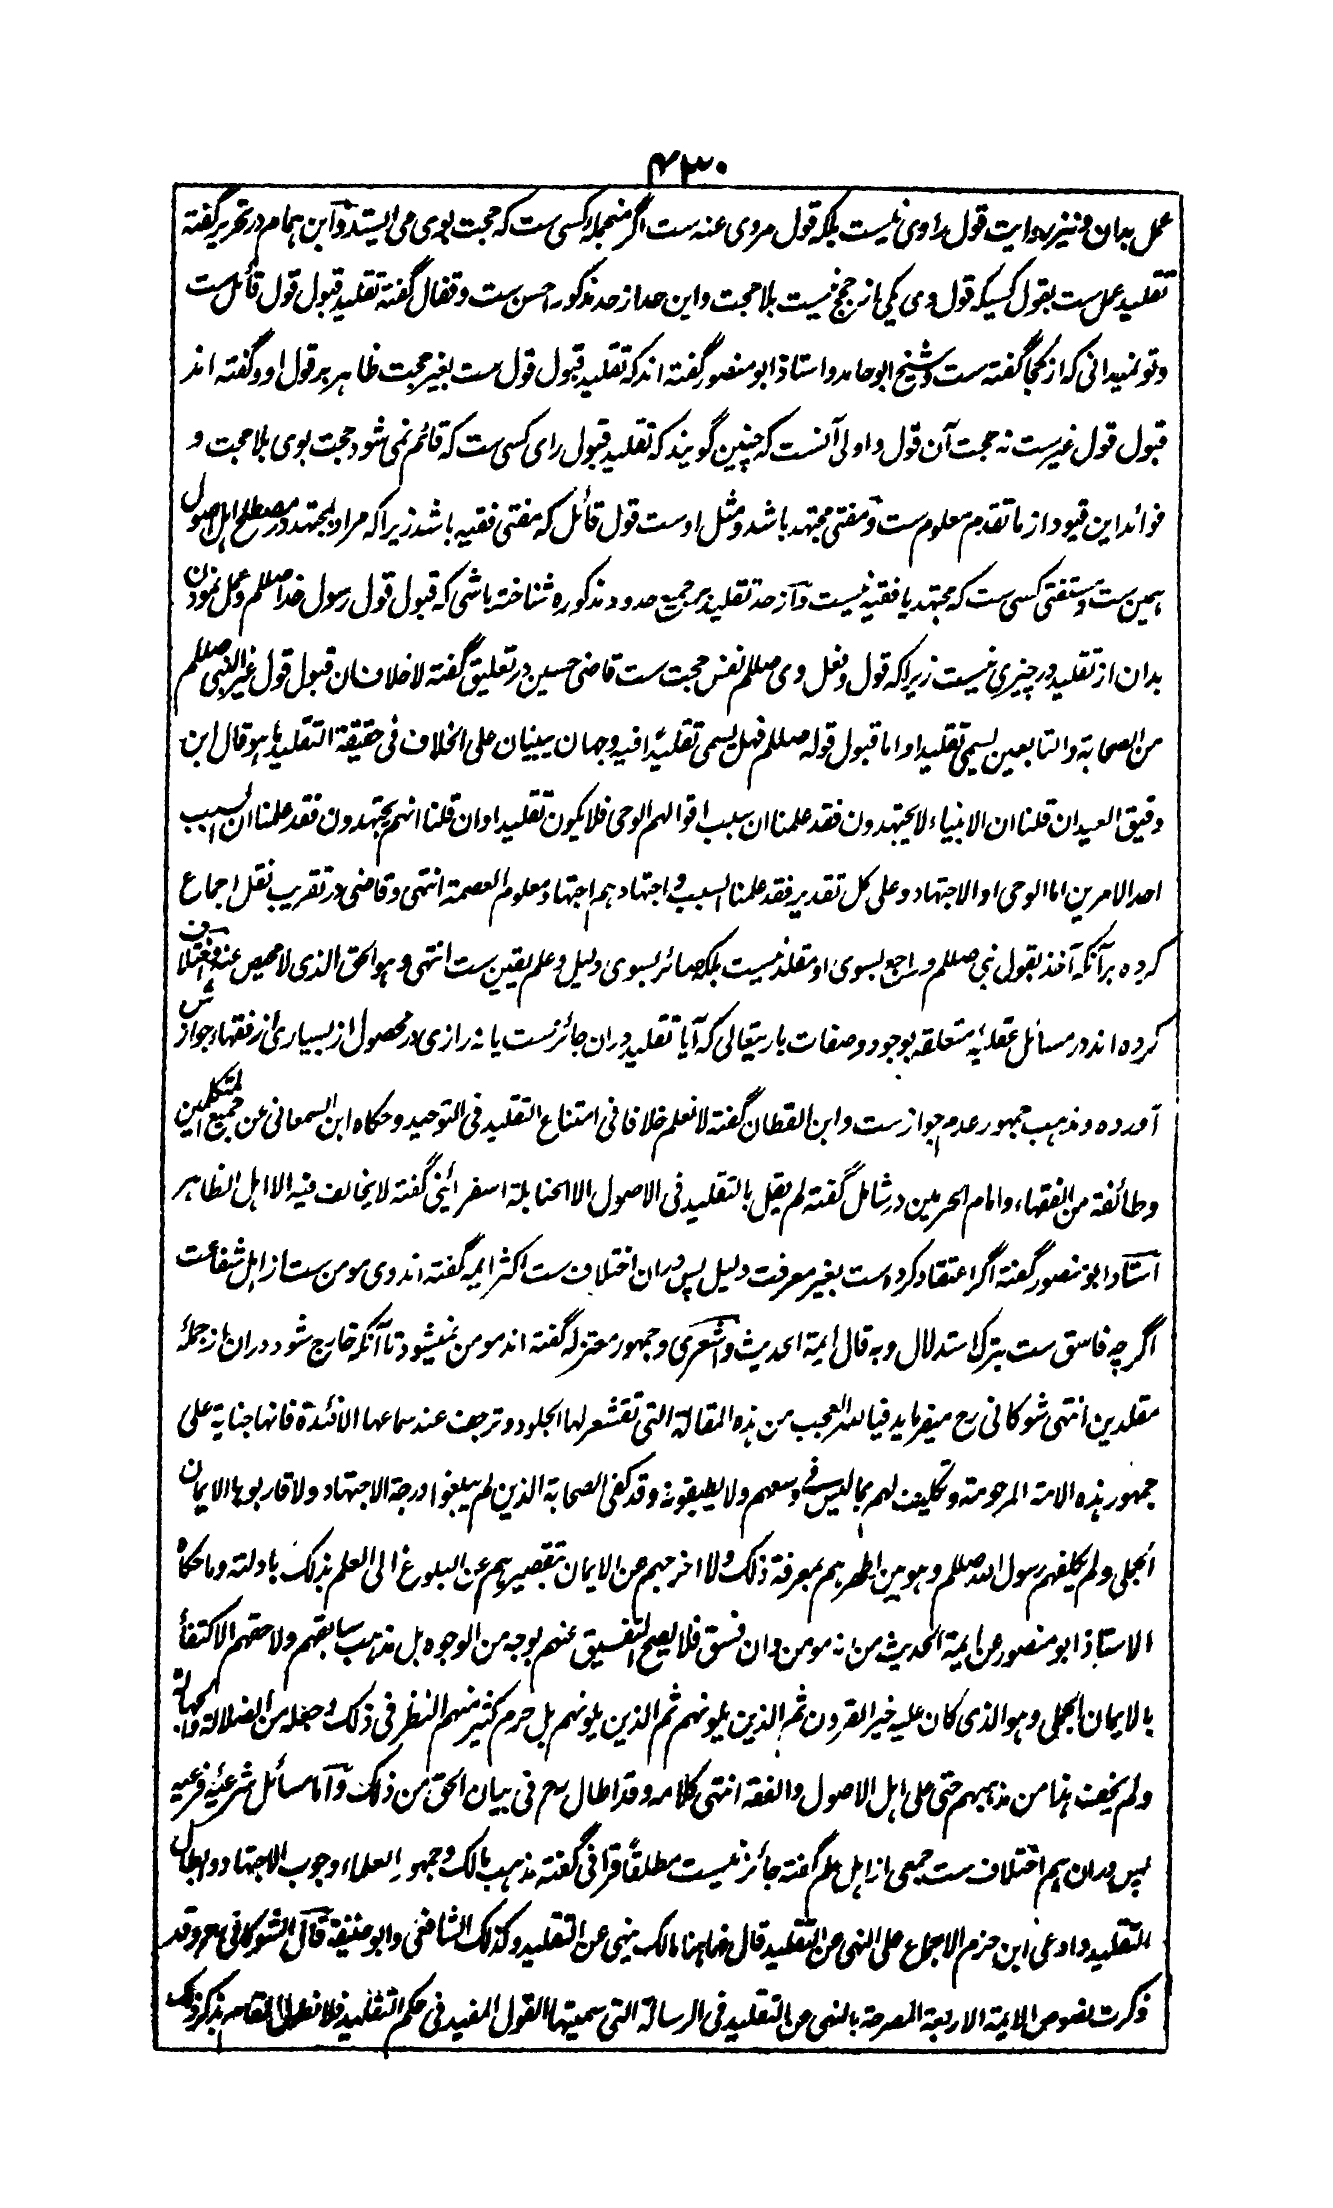 ۴۳۰
عمل بدان و نیز بروایت قول راوی نیست بلکه قول مروی عنه ست اگر منجمله کسی ست که حجت بوی می ایستد و ابن همام در تحریر گفته
تقلید عمل ست بقول کسیکه قول وی یکی از حجج نیست بلا حجت و این حد از حد مذکور احسن ست و قفال گفته تقلید قبول قول قائل ست
و تو نمیدانی که از کجا گفته ست و شیخ ابو حامد و استاذ ابو منصور گفته اند که تقلید قبول قول ست بغیر حجت ظاهر بر قول او و گفته اند
قبول قول غیر ست نه حجت آن قول و اولی آنست که چنین گویند که تقلید قبول رای کسی ست که قائم نمی شود حجت بوی بلا حجت و
فوائد این قیود از ما تقدم معلوم ست و مفتی مجتهد باشد و مثل اوست قول قائل که مفتی فقیه باشد زیرا که مراد بمجتهد در مصطلح اهل اصول
همین ست و مستفتی کسی ست که مجتهد یا فقیه نیست و از حد تقلید بر جمیع حدود مذکوره شناخته باشی که قبول قول رسول خدا صللم و عمل نمودن
بدان از تقلید در چیزی نیست زیرا که قول و فعل وی صللم نفس حجت ست قاضی حسین در تعلیق گفته لا خلاف ان قبول قول غیر النبی صللم
من الصحابة والتابعین یسمی تقلیدا و اما قبول قوله صللم فهل یسمی تقلیدًا فیه وجهان یبنیان علی الخلاف فی حقیقة التقلید ما هو و قال ابن
دقیق العید ان قلنا ان الانبیاء لا یجتهدون فقد علمنا ان سبب اقوالهم الوحی فلا یکون تقلیدا و ان قلنا انهم یجتهدون فقد علمنا ان السبب
احد الامرین اما الوحی او الاجتهاد و علی کل تقدیر فقد علمنا السبب و اجتهادهم اجتهاد معلوم العصمة انتهی و قاضی در تقریب نقل اجماع
کرده برآنکه آخذ بقول نبی صللم و راجع بسوی او مقلد نیست بلکه صائر بسوی دلیل و علم یقین ست انتهی و هو الحق الذی لا محیص عنه و اختلاف
کرده اند در مسائل عقلیه متعلقه بوجود و صفات باریتعالی که آیا تقلید دران جائز ست یا نه رازی در محصول از بسیاری از فقهاء جوازش
آورده و مذهب جمهور عدم جواز ست و ابن القطان گفته لا نعلم خلافا فی امتناع التقلید فی التوحید و حکاه ابن السمعانی عن جمیع المتکلمین
و طائفة من الفقهاء و امام الحرمین در شامل گفته لم یقل بالتقلید فی الاصول الا الحنابلة اسفرائنی گفته لا یخالف فیه الا اهل الظاهر
استاد ابو منصور گفته اگر اعتقاد کرده است بغیر معرفت دلیل پس دران اختلاف ست اکثر ایمه گفته اند وی مومن ست از اهل شفاعت
اگرچه فاسق ست بترک استدلال و به قال ایمة الحدیث و اشعری و جمهور معتزله گفته اند مومن نمیشود تا آنکه خارج شود دران از جمله
مقلدین انتهی شوکانی رح میفرماید فیا لله العجب من هذه المقالة التی تقشعر لها الجلود و ترجف عند سماعها الافئدة فانها جنایة علی
جمهور هذه الامة المرحومة و تکلیف لهم بما لیس فی وسعهم و لا یطیقونه و قد کفی الصحابة الذین لم یبلغوا درجة الاجتهاد و لا قاربوها الایمان
الجملی و لم یکلفهم رسول الله صللم و هو بین اظهرهم بمعرفة ذلک و لا اخرجهم عن الایمان بتقصیرهم عن البلوغ الی العلم بذلک بادلته و ما حکاه
الاستاذ ابو منصور عن ایمة الحدیث من انه مومن و ان فسق فلا یصح التفسیق عنهم بوجه من الوجوه بل مذهب سابقهم و لاحقهم الاکتفاء
بالایمان الجملی و هو الذی کان علیه خیر القرون ثم الذین یلونهم ثم الذین یلونهم بل حرم کثیر منهم النظر فی ذلک و جعله من الضلالة و الجهالة
و لم یخف هذا من مذهبهم حتی علی اهل الاصول و الفقه انتهی کلامه و قد اطال رح فی بیان الحق من ذلک و اما مسائل شرعیه فرعیه
پس دران هم اختلاف ست جمعی از اهل علم گفته جائز نیست مطلقًا قرافی گفته مذهب مالک و جمهور العلماء وجوب الاجتهاد و ابطال
التقلید و ادعی ابن حزم الاجماع علی النهی عن التقلید قال فهاهنا مالک ینهی عن التقلید و کذلک الشافعی و ابو حنیفة قال الشوکانی رح و قد
ذکرت نصوص الایمة الاربعة المصرحة بالنهی عن التقلید فی الرسالة التی سمیتها القول المفید فی حکم التقلید فلا نطول المقام بذکر ذلک